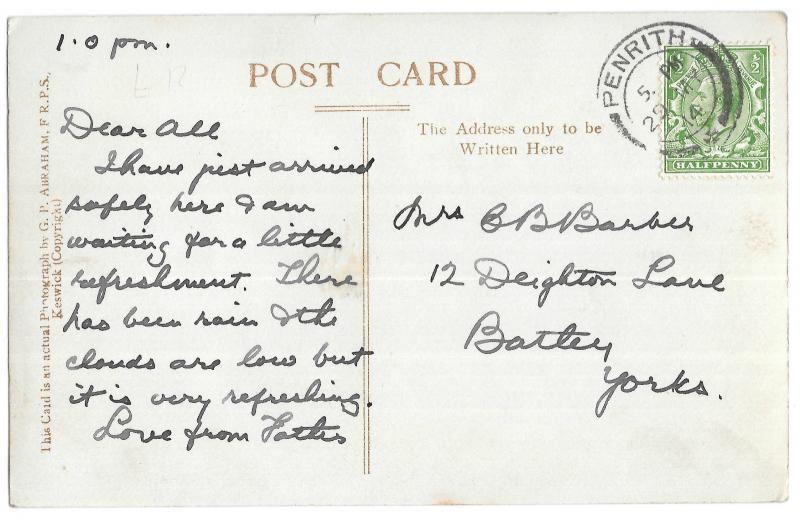 1.0 pm.
POST CARD
Dear All
I have just arrived
safely here & am
waiting for a little
refreshment. There
has been rain & the
clouds are low but
it is very refreshing.
Love from Father
The Address only to be
Written Here
Mrs C B Barber
12 Deighton Lane
Batley
Yorks.
This Card is an actual Photograph by G. P. ABRAHAM, F.R.P.S.,
Keswick (Copyright)
PENRITH
HALFPENNY